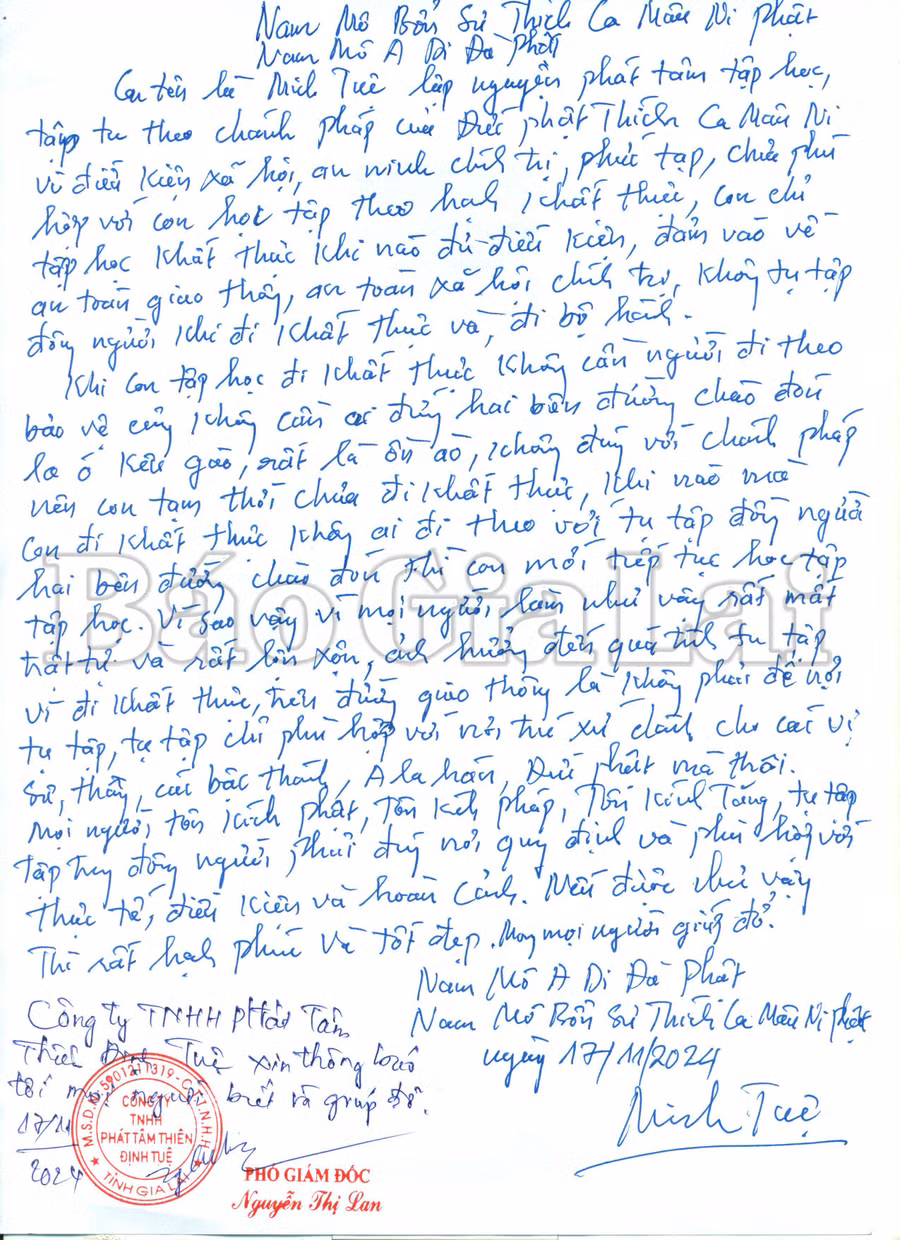 Nam Mô Bổn Sư Thích Ca Mâu Ni Phật
Nam Mô A Di Đà Phật
Con tên là Minh Tuệ lập nguyện phát tâm tập học,
tập tu theo chánh pháp của Đức phật Thích Ca Mâu Ni
vì điều kiện xã hội, an ninh chính trị, phức tạp, chưa phù
hợp với con học tập theo hạnh khất thực, con chỉ
tập học khất thực khi nào đủ điều kiện, đảm vảo về
an toàn giao thông, an toàn xã hội chính trị, không tụ tập
đông người khi đi khất thực và, đi bộ hành.
Khi con tập học đi khất thực không cần người đi theo
bảo vệ cũng không cần ai đứng hai bên đường chào đón
la ó kêu gào, rất là ồn ào, không đúng với chánh pháp
nên con tạm thời chưa đi khất thực, khi nào mà
con đi khất thực không ai đi theo với tụ tập đông người
hai bên đường chào đón thì con mới tiếp tục học tập
tập học. Vì sao vậy vì mọi người làm như vậy rất mất
trật tự và rất lộn xộn, ảnh hưởng đến quá tình tu tập
vì đi khất thực, trên đường giao thông là không phải để nơi
tụ tập, tụ tập chỉ phù hợp với nơi, trú xứ dành cho các vị
sư, thầy, các bậc thánh, A la hán, Đức phật mà thôi.
Mọi người, tôn kính phật, Tôn kính pháp, Tôn kính Tăng, tụ tập
tập trung đông người phải đúng nơi quy định và phù hợp với
thực tế, điều kiện và hoàn cảnh. Nếu được như vậy
Thì rất hạnh phúc và tốt đẹp. Mong mọi người giúp đỡ.
Nam Mô A Di Đà Phật
Nam Mô Bổn Sư Thích Ca Mâu Ni phật
ngày 17/11/2024
Minh Tuệ
Công ty TNHH Phát Tâm
Thiên Định Tuệ xin thông báo
tới mọi người biết và giúp đỡ.
17/11
2024
M.S.D.N: 5901211319 - C.T.T.N.H.H
CÔNG TY
TNHH
PHÁT TÂM THIÊN
ĐỊNH TUỆ
TỈNH GIA LAI
PHÓ GIÁM ĐỐC
Nguyễn Thị Lan
Báo Gia Lai